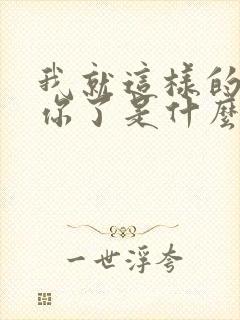 我就這樣的
你了是什麼
一世浮夸